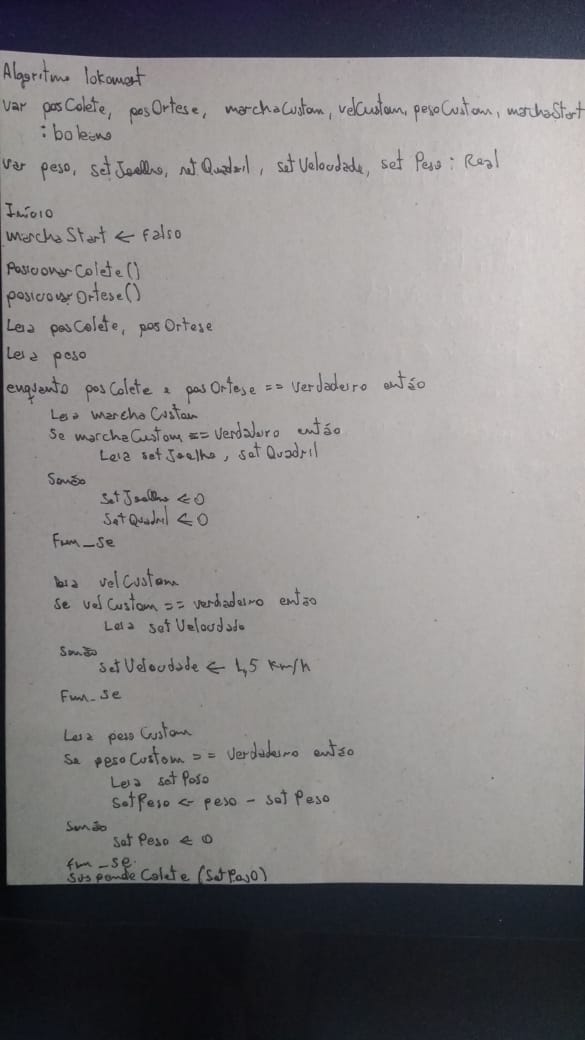 Algoritmo lokomat
var posColete, posOrtese, marchaCustom, velCustom, pesoCustom, marchaStart
: boleano
var peso, setJoelho, setQuadril, setVelocidade, setPeso : Real
Início
marchaStart ← Falso
PosicionarColete()
posicionarOrtese()
Leia posColete, posOrtese
Leia peso
enquanto posColete e posOrtese == verdadeiro então
Leia marchaCustom
Se marchaCustom == Verdadeiro então
Leia setJoelho, setQuadril
Senão
SetJoelho ← 0
SetQuadril ← 0
Fim_se
leia velCustom
Se velCustom == verdadeiro então
Leia setVelocidade
Senão
setVelocidade ← 1,5 Km/h
Fim_se
Leia pesoCustom
Se pesoCustom == Verdadeiro então
Leia setPeso
SetPeso ← peso - setPeso
Senão
setPeso ← 0
fim_se
SuspendeColete (SetPeso)